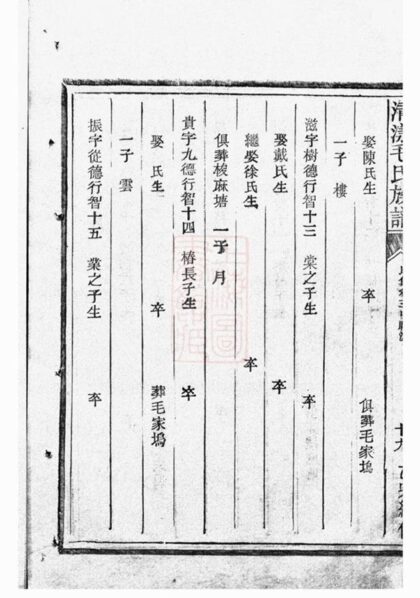 清漾毛氏族譜
娶陳氏生 卒 俱葬毛家塢
一子 樓
滋字樹德行智十三 棠之子生 卒
娶戴氏生 卒
繼娶徐氏生 卒
俱葬梭麻塘 一子 月
貴字九德行智十四 椿長子生 卒
娶 氏生 卒 葬毛家塢
一子 雲
振字從德行智十五 業之子生 卒